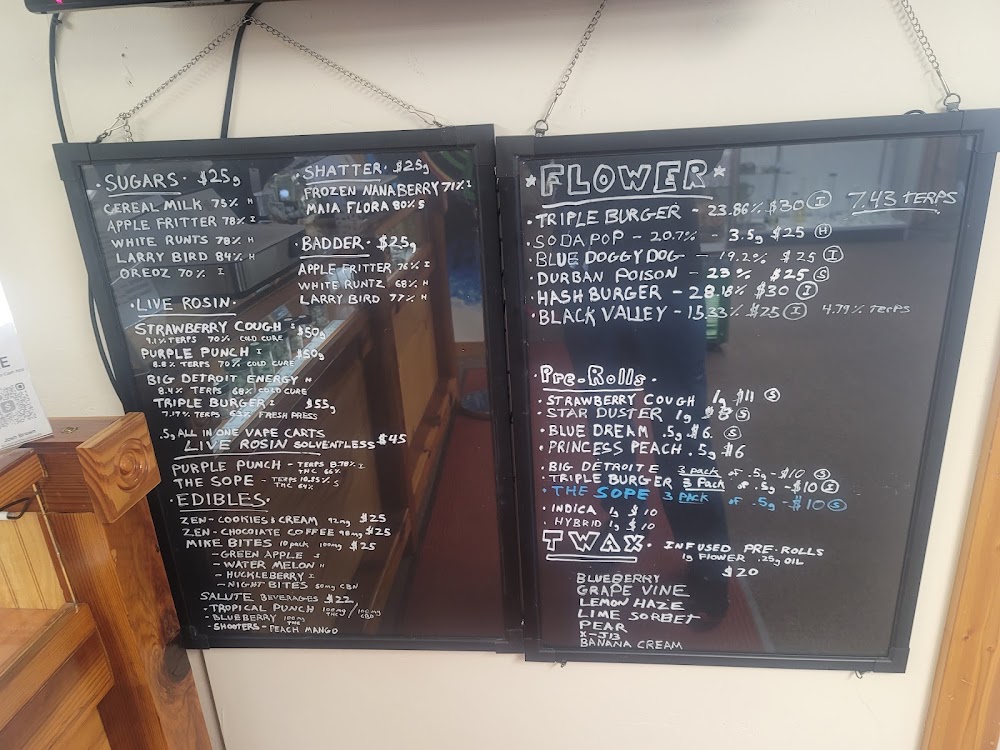 SUGARS. $25g
CEREAL MILK 75% H
APPLE FRITTER 78% I
WHITE RUNTS 78% H
LARRY BIRD 84% H
OREOZ 70% I
SHATTER. $25g
FROZEN NANABERRY 71% I
MAIA FLORA 80% S
BADDER. $25g
APPLE FRITTER 76% I
WHITE RUNTZ 68% H
LARRY BIRD 77% H
LIVE ROSIN.
STRAWBERRY COUGH S $50g
9.1% TERPS 70% COLD CURE
PURPLE PUNCH I $50g
8.8% TERPS 70% COLD CURE
BIG DETROIT ENERGY H
8.4% TERPS 68% COLD CURE
TRIPLE BURGER I $55g
7.17% TERPS 63% FRESH PRESS
.5g ALL IN ONE VAPE CARTS
LIVE ROSIN SOLVENTLESS $45
PURPLE PUNCH - TERPS 8.78% I
THC 66%
THE SOPE - TERPS 10.35% S
THC 64%
EDIBLES.
ZEN - COOKIES & CREAM 92mg $25
ZEN - CHOCOLATE COFFEE 98mg $25
MIKE BITES 10 pack 100mg $25
- GREEN APPLE S
- WATER MELON H
- HUCKLEBERRY I
- NIGHT BITES 50mg CBN
SALUTE BEVERAGES $22
- TROPICAL PUNCH 100mg THC / 100mg CBD
- BLUEBERRY 100mg THC
- SHOOTERS - PEACH MANGO
FLOWER
TRIPLE BURGER - 23.86% $30 I 7.43 TERPS
SODA POP - 20.7% - 3.5g $25 H
BLUE DOGGY DOG - 19.2% $25 I
DURBAN POISON - 23% $25 S
HASH BURGER - 28.18% $30 I
BLACK VALLEY - 15.33% $25 I 4.79% TERPS
Pre-Rolls.
STRAWBERRY COUGH 1g $11 S
STAR DUSTER 1g S
BLUE DREAM .5g $6. S
PRINCESS PEACH .5g $6
BIG DETROIT E 3 pack of .5g - $10 S
TRIPLE BURGER 3 Pack of .5g - $10 I
THE SOPE 3 PACK of .5g - $10 S
INDICA 1g $10
HYBRID 1g $10
TWAX. INFUSED PRE-ROLLS
1g FLOWER .25g OIL
$20
BLUEBERRY
GRAPE VINE
LEMON HAZE
LIME SORBET
PEAR
X-J13
BANANA CREAM